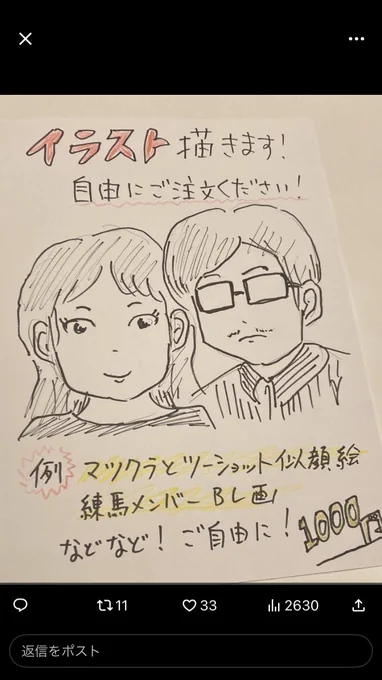 イラスト描きます!
自由にご注文ください!
例 マツクラとツーショット似顔絵
練馬メンバーBL画
などなど! ご自由に!
1000円
11
33
2630
返信をポスト